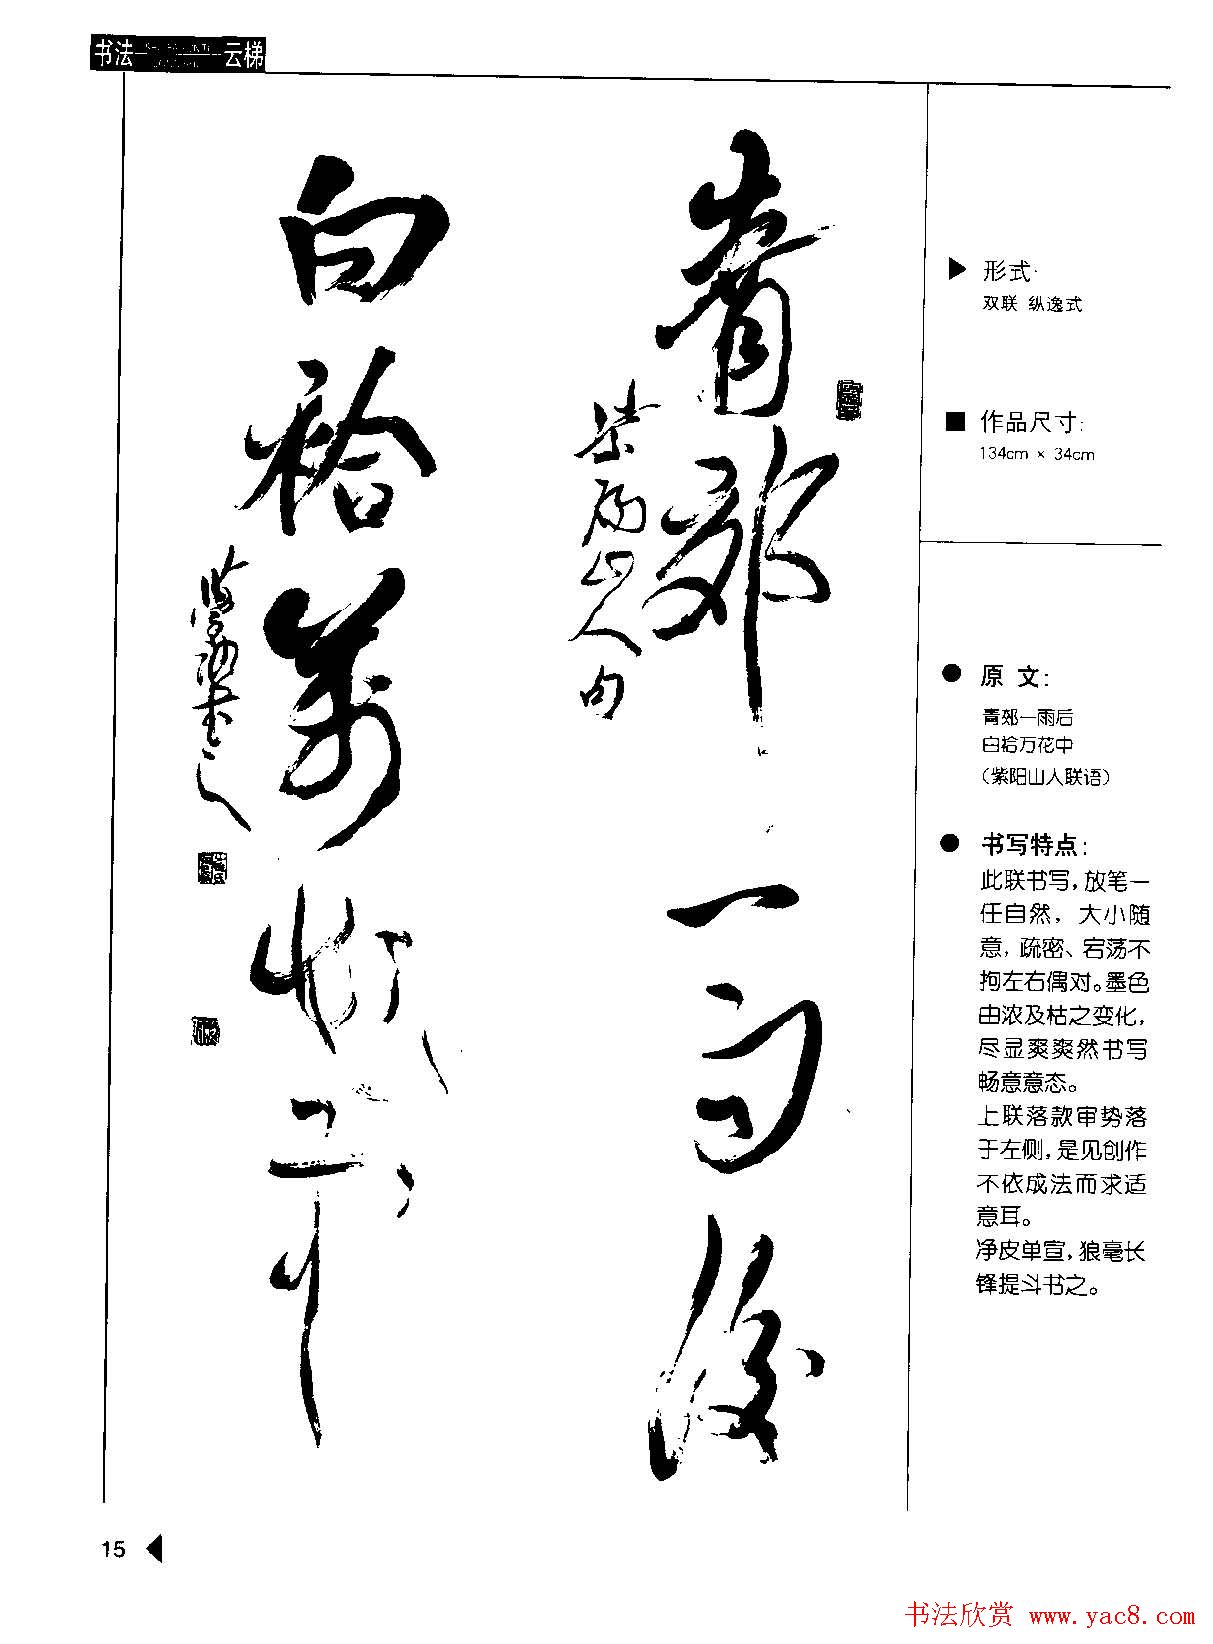 书法
云梯
青郊一雨後
紫阳山人句
白袷萬花中
▶ 形式·
双联 纵逸式
■ 作品尺寸:
134cm × 34cm
● 原 文:
青郊一雨后
白袷万花中
(紫阳山人联语)
● 书写特点:
此联书写,放笔一
任自然, 大小随
意,疏密、宕荡不
拘左右偶对。墨色
由浓及枯之变化,
尽显爽爽然书写
畅意意态。
上联落款审势落
于左侧,是见创作
不依成法而求适
意耳。
净皮单宣,狼毫长
锋提斗书之。
15
书法欣赏 www.yac8.com